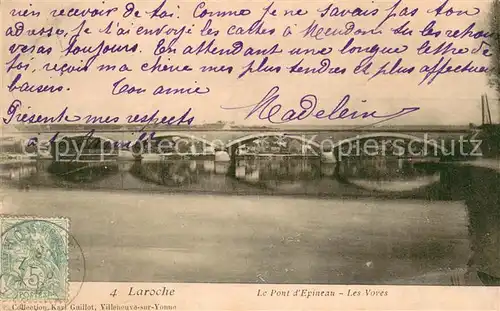 rien recevoir de toi. Comme je ne savais pas ton
adresse, je t'ai envoyé les cartes à Meudon tu les retrou
veras toujours. En attendant une longue lettre de
toi, reçois ma chère mes plus tendres et plus affectueux
baisers. Ton amie
Madelein
Présente mes respects
à ta famille
delcampe.net
4 Laroche
Le Pont d'Epineau - Les Voves
Collection Karl Guillot, Villeneuve-sur-Yonne